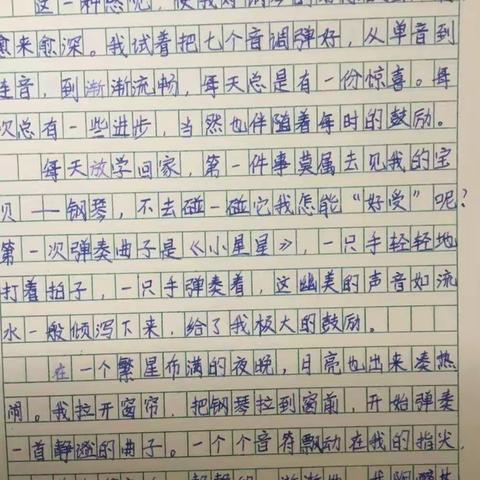 这一种感觉，使我对钢琴的
愈来愈深。我试着把七个音调弹好，从单音到
连音，到渐渐流畅，每天总是有一份惊喜。每
次总有一些进步，当然也伴随着每时的鼓励。
每天放学回家，第一件事莫属去见我的宝
贝——钢琴，不去碰一碰它我怎能“好受”呢？
第一次弹奏曲子是《小星星》，一只手轻轻地
打着拍子，一只手弹奏着，这幽美的声音如流
水一般倾泻下来，给了我极大的鼓励。
在一个繁星布满的夜晚，月亮也出来凑热
闹。我拉开窗帘，把钢琴拉到窗前，开始弹奏
一首静谧的曲子。一个个音符飘动在我的指尖，